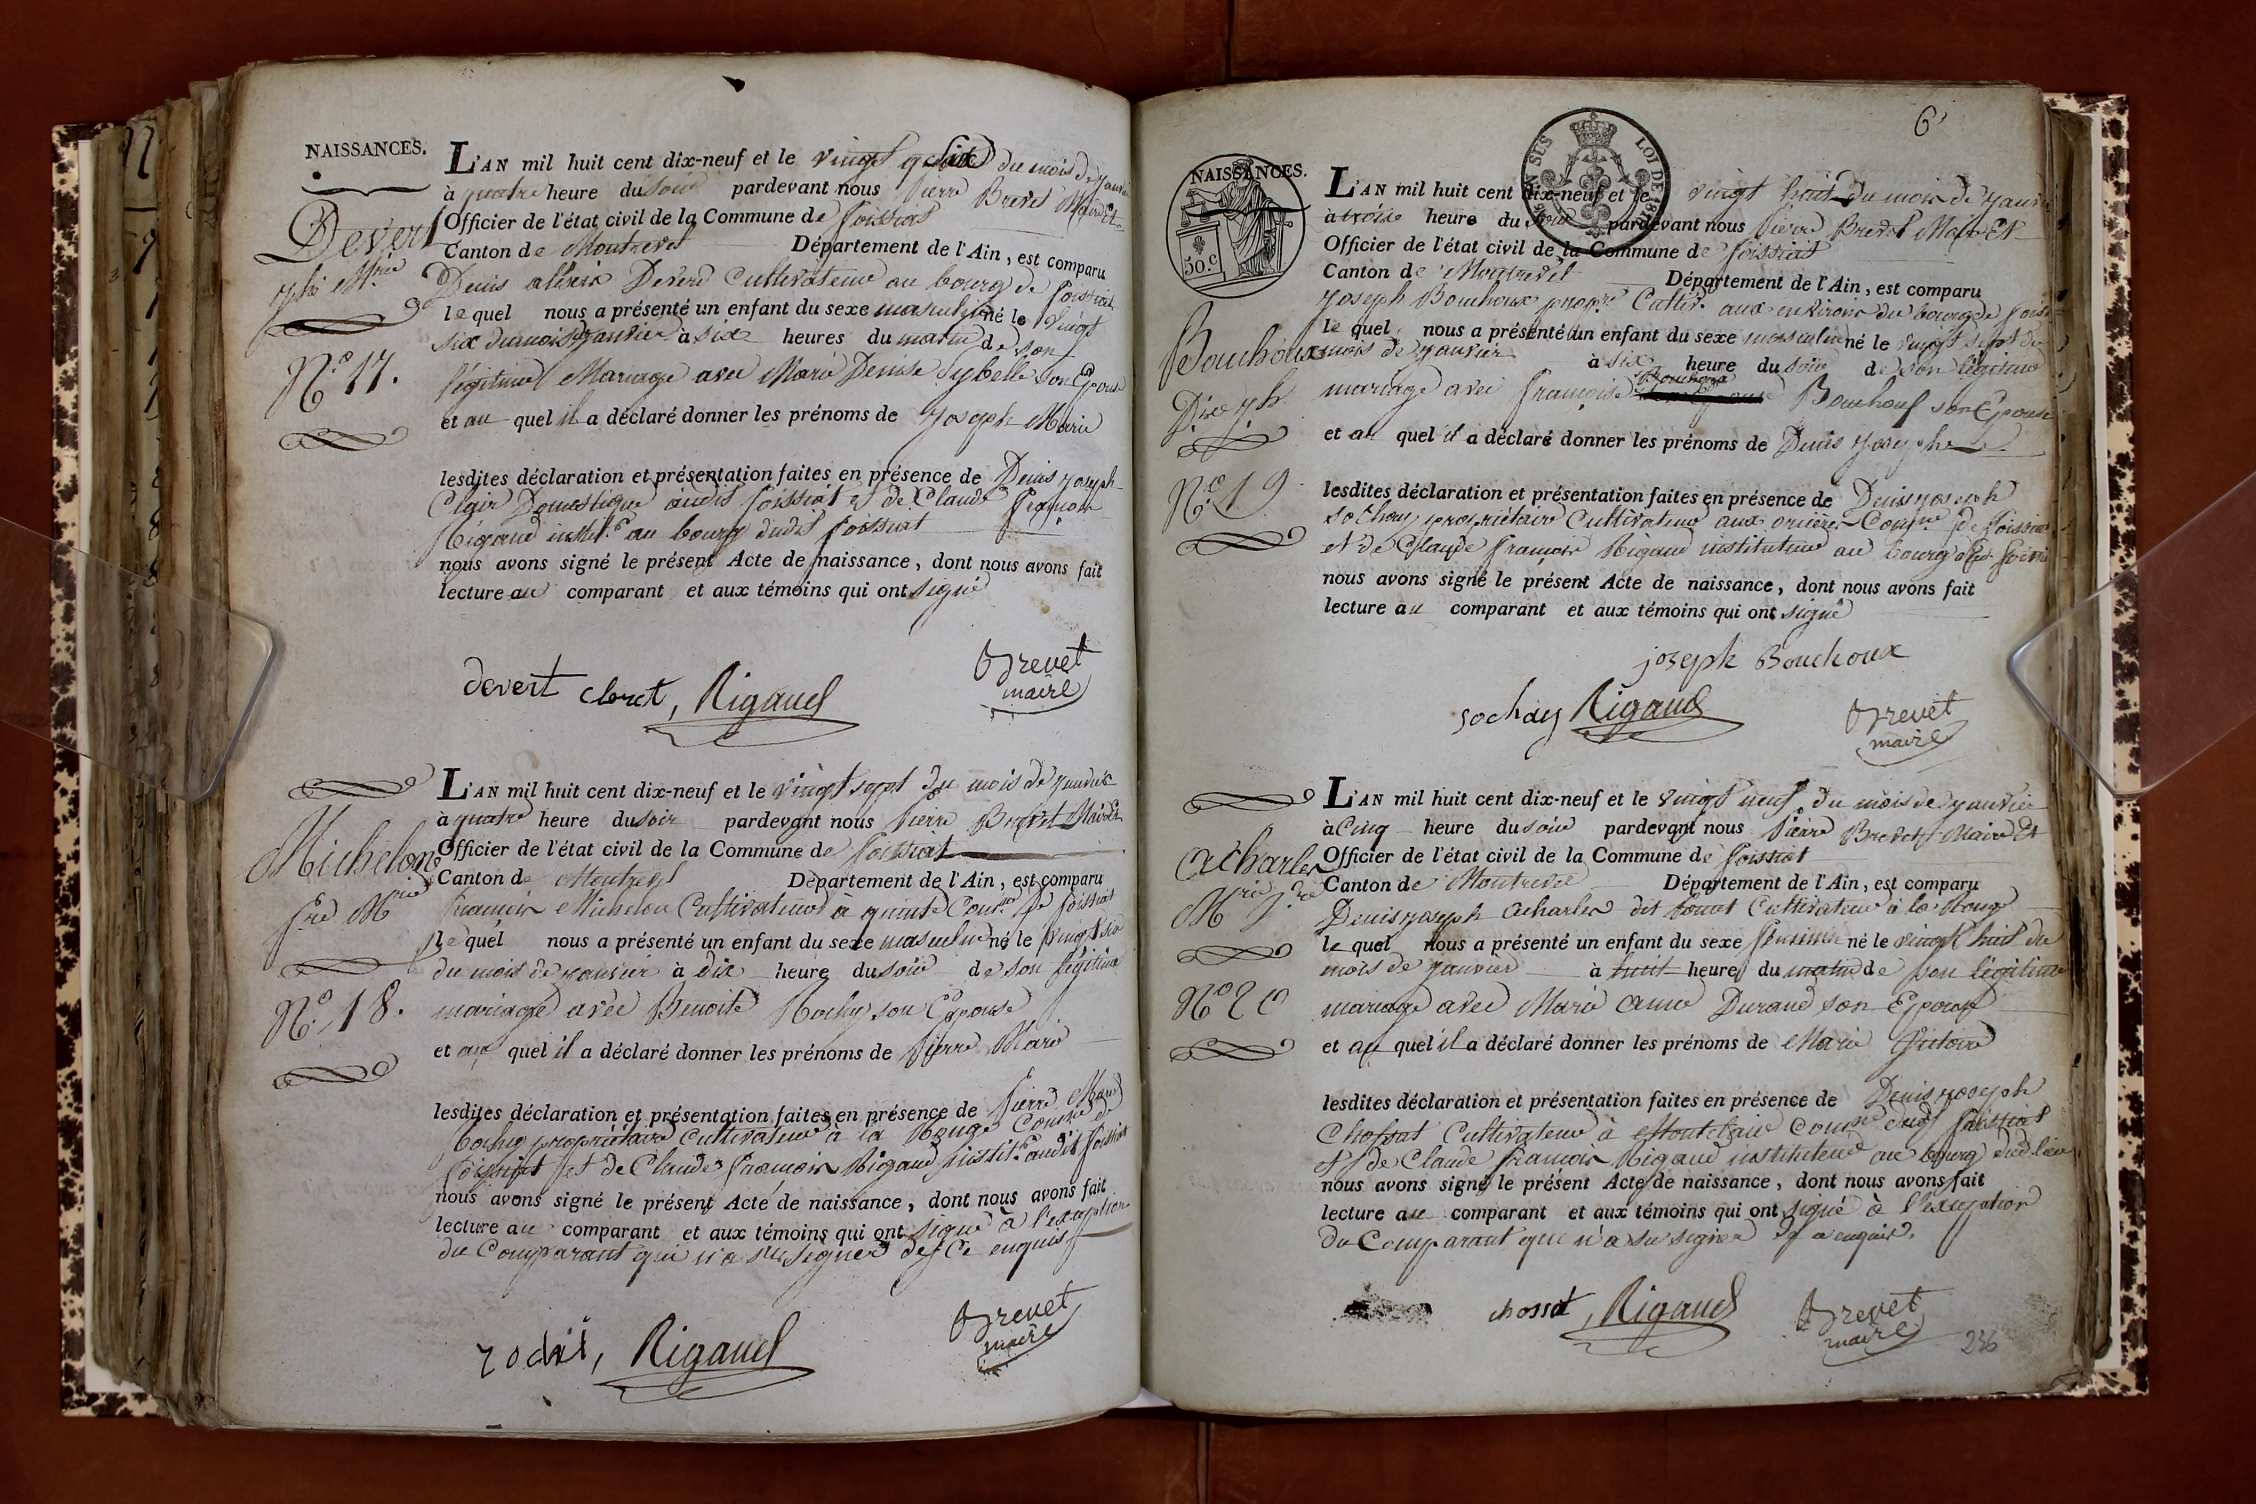 NAISSANCES.
Devert
jph Mrie
N.o 17.
L'AN mil huit cent dix-neuf et le vingt six du mois de janvier
à quatre heure du soir pardevant nous Pierre Brevet Maire Et
Officier de l'état civil de la Commune de foissiat
Canton de Montrevel Département de l'Ain, est comparu
Denis Devert Cultivateur au bourg de foissiat
le quel nous a présenté un enfant du sexe masculin né le vingt
six du mois de janvier à six heures du matin de son
légitime Mariage avec Marie Denise Sybelle son Epouse
et au quel il a déclaré donner les prénoms de joseph Marie
lesdites déclaration et présentation faites en présence de Denis joseph
Domestique audit foissiat et de Claude françois
Rigaud instit.r au bourg dudit foissiat
nous avons signé le présent Acte de naissance, dont nous avons fait
lecture au comparant et aux témoins qui ont signé
devert cleret, Rigaud
Brevet
maire
Michelon
Pre Mrie
N.o 18.
L'AN mil huit cent dix-neuf et le vingt sept du mois de janvier
à quatre heure du soir pardevant nous Pierre Brevet Maire Et
Officier de l'état civil de la Commune de foissiat
Canton de Montrevel Département de l'Ain, est comparu
françois Michelon Cultivateur à Comne de foissiat
le quel nous a présenté un enfant du sexe masculin né le vingt six
du mois de janvier à dix heure du soir de son légitime
mariage avec Benoite Rochy son Epouse
et au quel il a déclaré donner les prénoms de Pierre Marie
lesdites déclaration et présentation faites en présence de Pierre Marie
propriétaire Cultivateur à la Rouge Comne de
foissiat et de Claude françois Rigaud instit.r audit foissiat
nous avons signé le présent Acte de naissance, dont nous avons fait
lecture au comparant et aux témoins qui ont signé à l'exception
du Comparant qui n'a su signer de ce enquis
Rigaud
Brevet
maire
6
NAISSANCES.
50.c
LOI DE 1816
Bouchoux
D.is jph
N.o 19.
L'AN mil huit cent dix-neuf et le vingt huit du mois de janvier
à trois heure du soir pardevant nous Pierre Brevet Maire Et
Officier de l'état civil de la Commune de foissiat
Canton de Montrevel Département de l'Ain, est comparu
joseph Bouchoux propre Cultiv.r aux environs du bourg de foissiat
le quel nous a présenté un enfant du sexe masculin né le vingt sept du
mois de janvier à six heure du soir de son légitime
mariage avec françoise Bouchoux son Epouse
et au quel il a déclaré donner les prénoms de Denis joseph
lesdites déclaration et présentation faites en présence de Denis joseph
sochay propriétaire Cultivateur aux Comne de foissiat
et de Claude françois Rigaud instituteur au bourg foissiat
nous avons signé le présent Acte de naissance, dont nous avons fait
lecture au comparant et aux témoins qui ont signé
joseph Bouchoux
sochay Rigaud
Brevet
maire
Acharles
Mrie
N.o 20
L'AN mil huit cent dix-neuf et le vingt neuf du mois de janvier
à Cinq heure du soir pardevant nous Pierre Brevet Maire Et
Officier de l'état civil de la Commune de foissiat
Canton de Montrevel Département de l'Ain, est comparu
Denis joseph Acharles dit Cultivateur à la Rouge
le quel nous a présenté un enfant du sexe féminin né le vingt huit du
mois de janvier à huit heure du matin de son légitime
mariage avec Marie Anne Durand son Epouse
et au quel il a déclaré donner les prénoms de Marie Victoire
lesdites déclaration et présentation faites en présence de Denis joseph
Chossat Cultivateur à Montclair Comne dudit foissiat
et de Claude françois Rigaud instituteur au bourg dud. lieu
nous avons signé le présent Acte de naissance, dont nous avons fait
lecture au comparant et aux témoins qui ont signé à l'exception
du Comparant que n'a su signer de ce enquis.
chossat, Rigaud
Brevet
maire
236